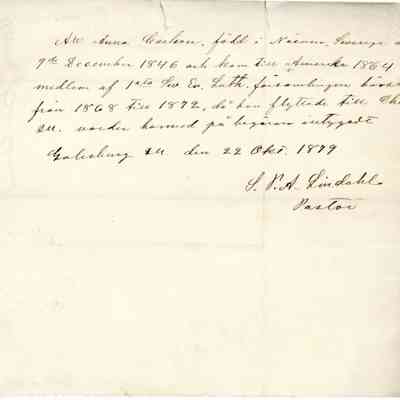 Att Anna Carlson, född i Näcuna, Sverige
9de December 1846 och kom till Amerika 1864
medlem af 1sta Sv. Ev. Luth. församlingen
från 1868 till 1872, då hon flyttade till Chi
Ill. varder härmed på begäran intygadt
Galesburg Ill den 22 Okt. 1879
S. P. A. Lindahl
Pastor